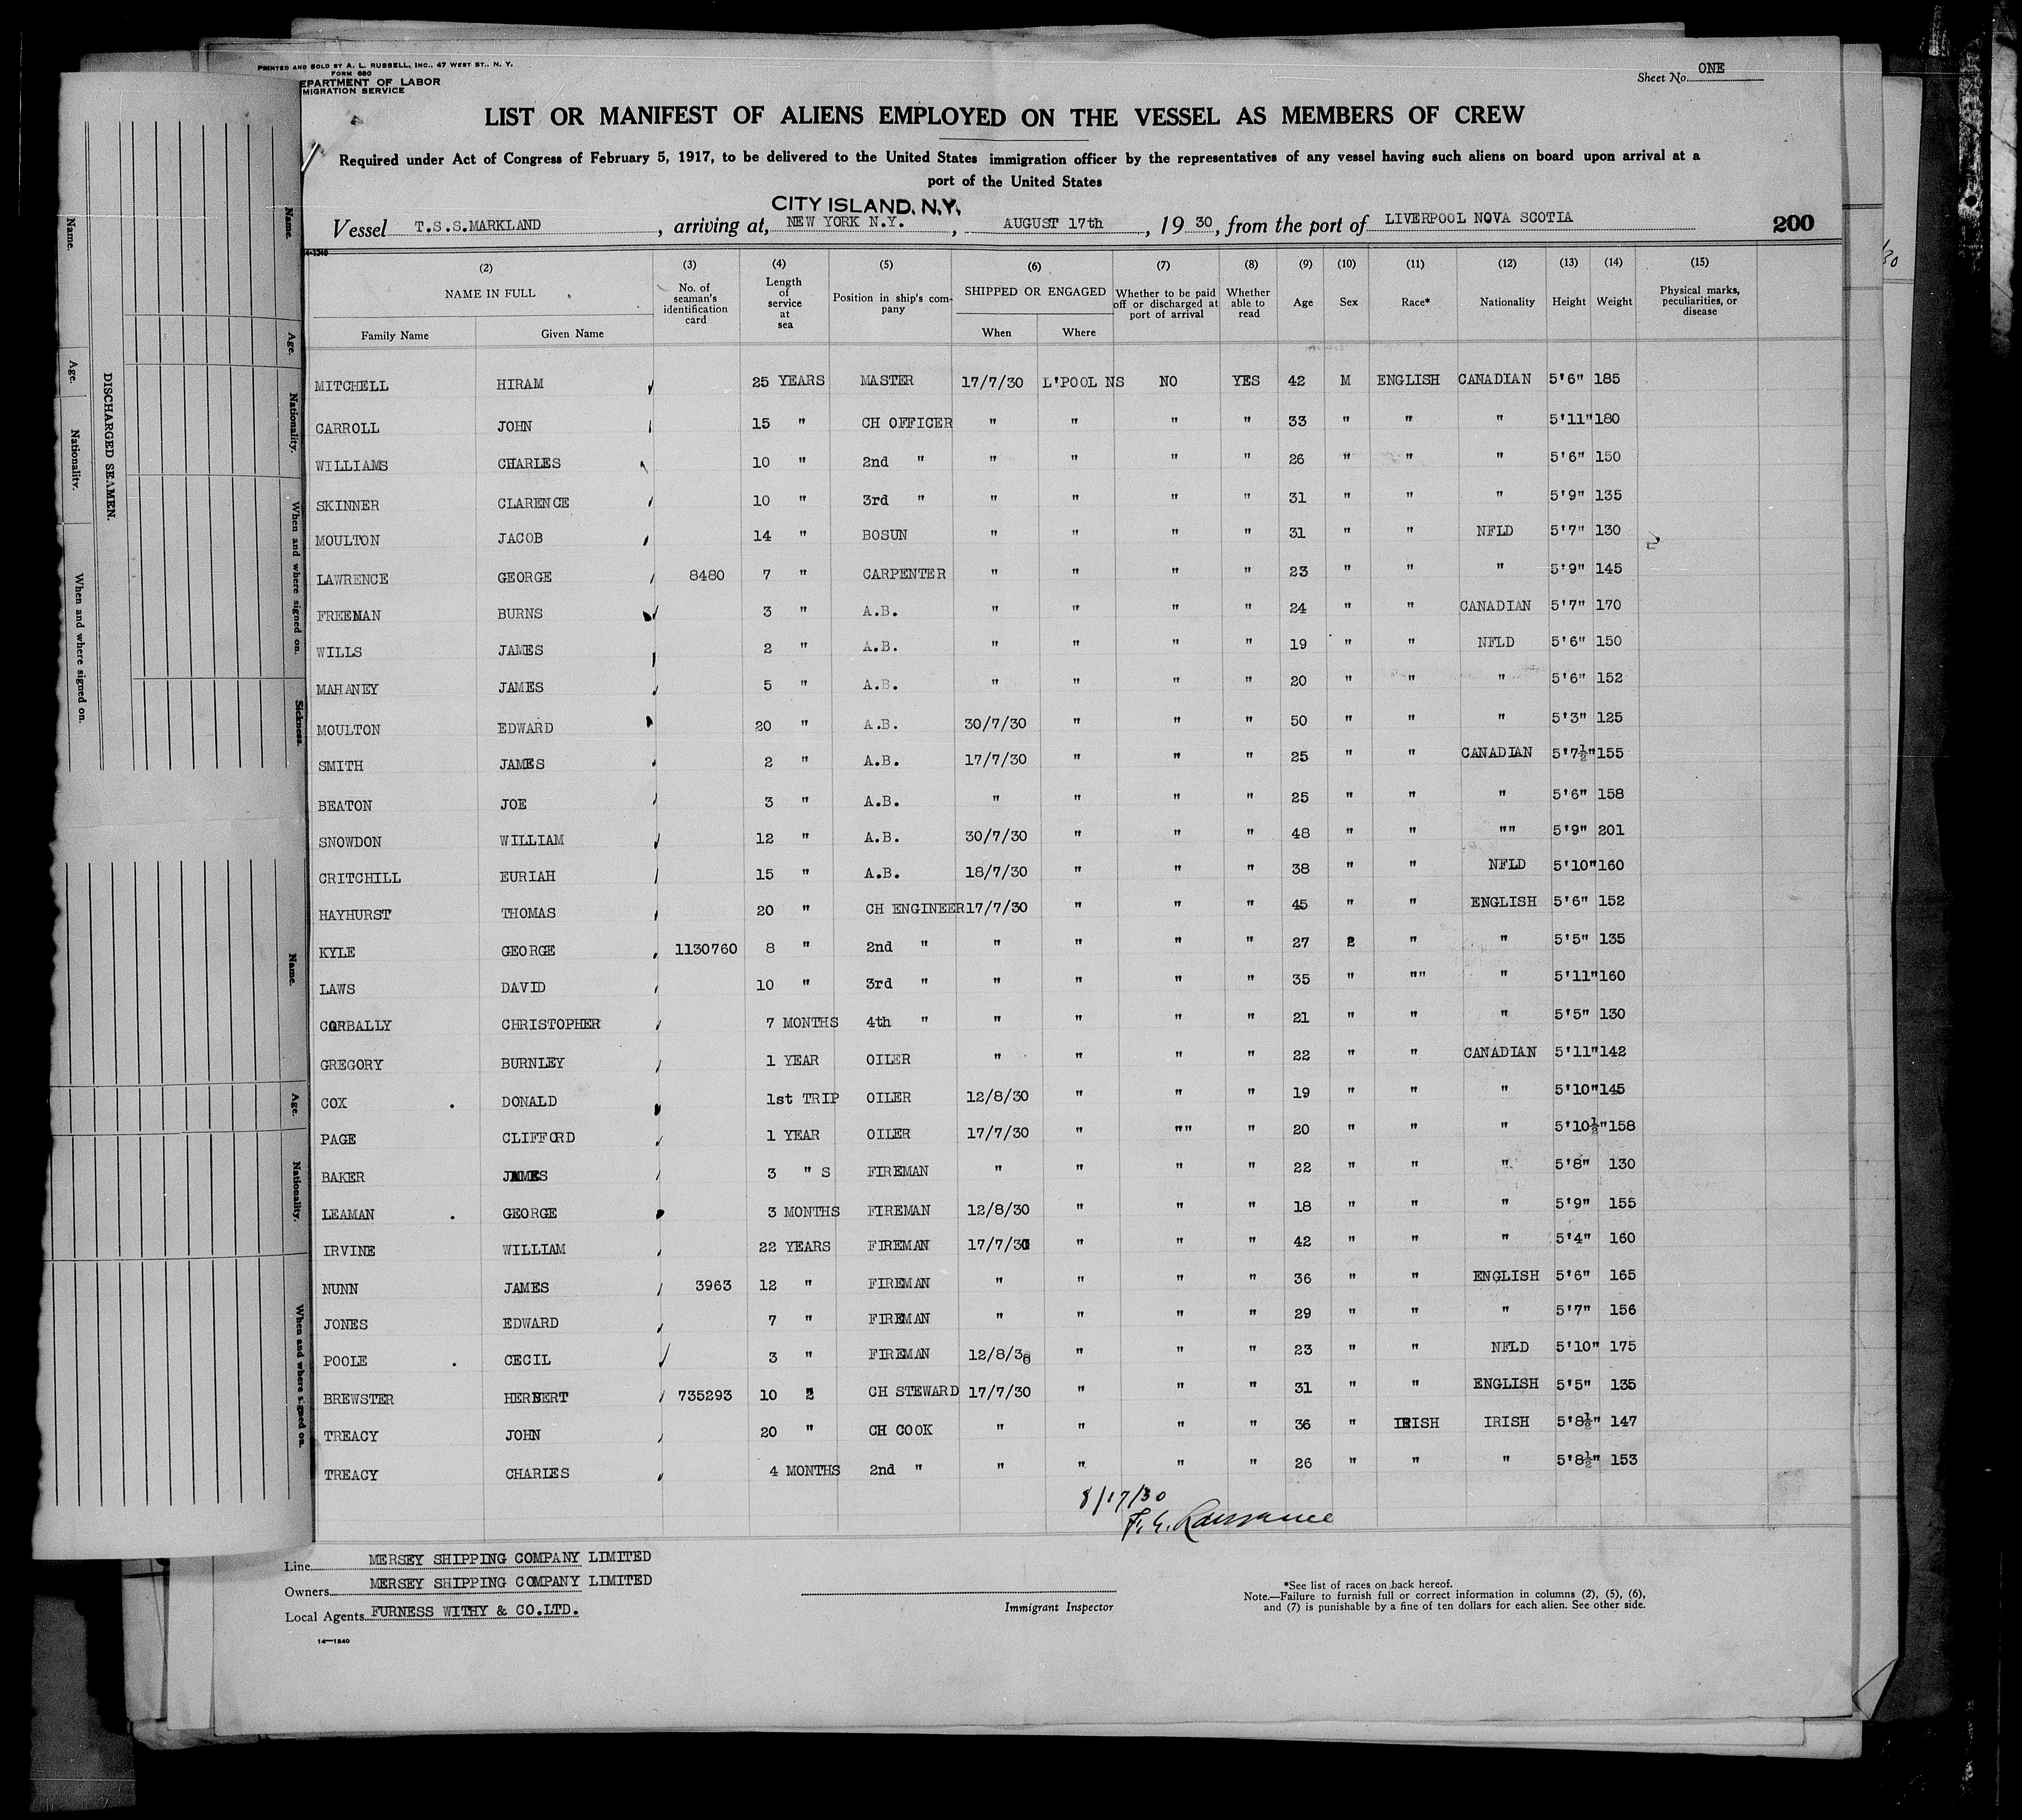 PRINTED AND SOLD BY A. L. RUSSELL, INC., 47 WEST ST., N. Y.
FORM 680
EPARTMENT OF LABOR
MIGRATION SERVICE
Sheet No. ONE
LIST OR MANIFEST OF ALIENS EMPLOYED ON THE VESSEL AS MEMBERS OF CREW
Required under Act of Congress of February 5, 1917, to be delivered to the United States immigration officer by the representatives of any vessel having such aliens on board upon arrival at a
port of the United States
CITY ISLAND, N.Y.
Vessel T.S.S.MARKLAND, arriving at, NEW YORK N.Y., AUGUST 17th, 19 30, from the port of LIVERPOOL NOVA SCOTIA 200
14-1240
(2) (3) (4) (5) (6) (7) (8) (9) (10) (11) (12) (13) (14) (15)
NAME IN FULL No. of seaman's identification card Length of service at sea Position in ship's company SHIPPED OR ENGAGED Whether to be paid off or discharged at port of arrival Whether able to read Age Sex Race* Nationality Height Weight Physical marks, peculiarities, or disease
Family Name Given Name When Where
MITCHELL HIRAM 25 YEARS MASTER 17/7/30 L'POOL NS NO YES 42 M ENGLISH CANADIAN 5'6" 185
CARROLL JOHN 15 " CH OFFICER " " " " 33 " " " 5'11" 180
WILLIAMS CHARLES 10 " 2nd " " " " " 26 " " " 5'6" 150
SKINNER CLARENCE 10 " 3rd " " " " " 31 " " " 5'9" 135
MOULTON JACOB 14 " BOSUN " " " " 31 " " NFLD 5'7" 130
LAWRENCE GEORGE 8480 7 " CARPENTER " " " " 23 " " " 5'9" 145
FREEMAN BURNS 3 " A.B. " " " " 24 " " CANADIAN 5'7" 170
WILLS JAMES 2 " A.B. " " " " 19 " " NFLD 5'6" 150
MAHANEY JAMES 5 " A.B. " " " " 20 " " " 5'6" 152
MOULTON EDWARD 20 " A.B. 30/7/30 " " " 50 " " " 5'3" 125
SMITH JAMES 2 " A.B. 17/7/30 " " " 25 " " CANADIAN 5'7½" 155
BEATON JOE 3 " A.B. " " " " 25 " " " 5'6" 158
SNOWDON WILLIAM 12 " A.B. 30/7/30 " " " 48 " " "" 5'9" 201
CRITCHILL EURIAH 15 " A.B. 18/7/30 " " " 38 " " NFLD 5'10" 160
HAYHURST THOMAS 20 " CH ENGINEER 17/7/30 " " " 45 " " ENGLISH 5'6" 152
KYLE GEORGE 1130760 8 " 2nd " " " " " 27 2 " " 5'5" 135
LAWS DAVID 10 " 3rd " " " " " 35 " "" " 5'11" 160
CORBALLY CHRISTOPHER 7 MONTHS 4th " " " " " 21 " " " 5'5" 130
GREGORY BURNLEY 1 YEAR OILER " " " " 22 " " CANADIAN 5'11" 142
COX . DONALD 1st TRIP OILER 12/8/30 " " " 19 " " " 5'10" 145
PAGE CLIFFORD 1 YEAR OILER 17/7/30 " "" " 20 " " " 5'10½" 158
BAKER JAMES 3 " S FIREMAN " " " " 22 " " " 5'8" 130
LEAMAN . GEORGE 3 MONTHS FIREMAN 12/8/30 " " " 18 " " " 5'9" 155
IRVINE WILLIAM 22 YEARS FIREMAN 17/7/30 " " " 42 " " " 5'4" 160
NUNN JAMES 3963 12 " FIREMAN " " " " 36 " " ENGLISH 5'6" 165
JONES EDWARD 7 " FIREMAN " " " " 29 " " " 5'7" 156
POOLE . CECIL 3 " FIREMAN 12/8/30 " " " 23 " " NFLD 5'10" 175
BREWSTER HERBERT 735293 10 " CH STEWARD 17/7/30 " " " 31 " " ENGLISH 5'5" 135
TREACY JOHN 20 " CH COOK " " " " 36 " IRISH IRISH 5'8½" 147
TREACY CHARLES 4 MONTHS 2nd " " " " " 26 " " " 5'8½" 153
8/17/30
Line MERSEY SHIPPING COMPANY LIMITED
Owners MERSEY SHIPPING COMPANY LIMITED
Local Agents FURNESS WITHY & CO.LTD.
Immigrant Inspector
*See list of races on back hereof.
Note.—Failure to furnish full or correct information in columns (2), (5), (6),
and (7) is punishable by a fine of ten dollars for each alien. See other side.
14—1240
DISCHARGED SEAMEN.
Name. Age. Nationality. When and where signed on.
Name. Age. Nationality. When and where signed on. Sickness.
Name. Age. Nationality. When and where signed on.